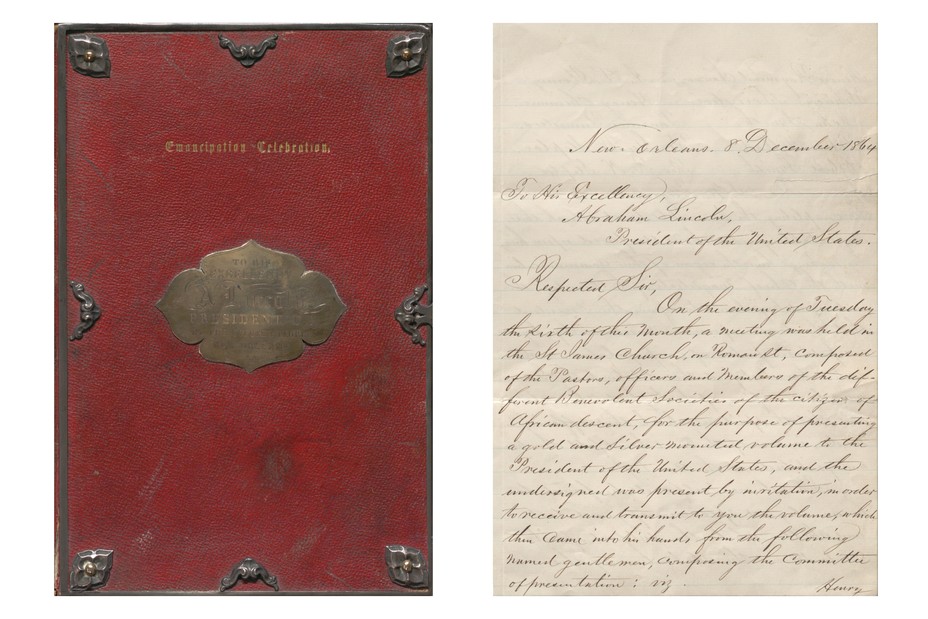 Emancipation Celebration.
TO HIS
EXCELLENCY
PRESIDENT
New-Orleans. 8. December 1864
To His Excellency,
Abraham Lincoln,
President of the United States.
Respected Sir,
On the evening of Tuesday
the sixth of this Month, a meeting was held in
the St James Church, on Roman St, composed
of the Pastors, officers and Members of the dif-
ferent Benevolent Societies of the citizens of
African descent, for the purpose of presenting
a gold and silver mounted volume to the
President of the United States, and the
undersigned was present, by invitation, in order
to receive and transmit to you the volume, which
then came into his hands from the following
named gentlemen, composing the Committee
of presentation: viz.
Henry